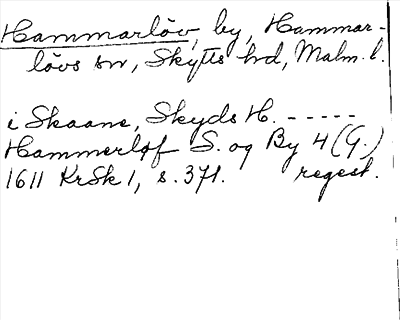 Hammarlöv, by, Hammar-
lövs sn, Skytts hd, Malm. l.
i Skaane, Skyds H. -----
Hammerløf S. og By 4 (G.)
1611 KrSk 1, s. 371. regest.